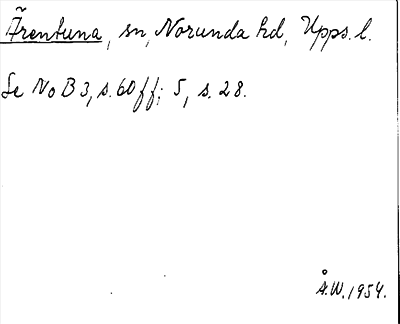 Ärentuna, sn, Norunda hd, Upps. l.
Se NoB 3, s. 60 ff; 5, s. 28.
Å.W. 1954.